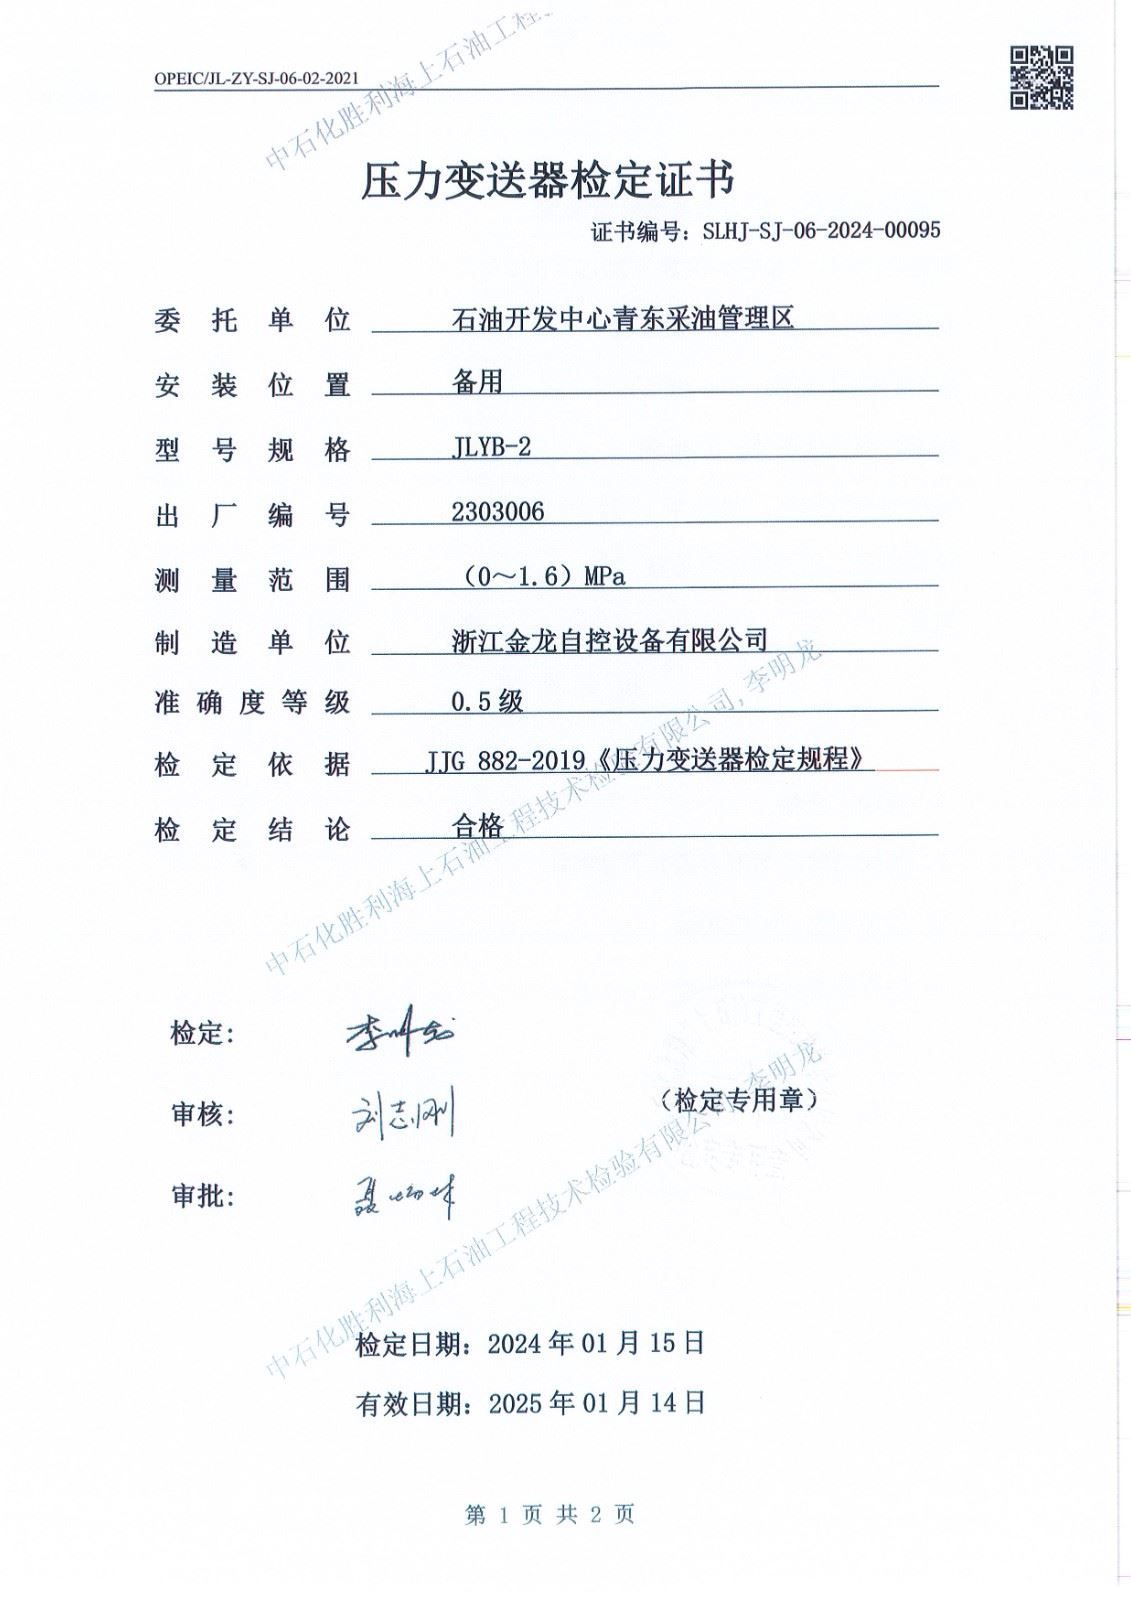 OPEIC/JL-ZY-SJ-06-02-2021
中石化胜利海上石油工程
压力变送器检定证书
证书编号：SLHJ-SJ-06-2024-00095
委托单位 石油开发中心青东采油管理区
安装位置 备用
型号规格 JLYB-2
出厂编号 2303006
测量范围 （0～1.6）MPa
制造单位 浙江金龙自控设备有限公司
准确度等级 0.5级
检定依据 JJG 882-2019《压力变送器检定规程》
检定结论 合格
中石化胜利海上石油工程技术检验有限公司,李明龙
检定： 李明龙
审核： 刘志刚
（检定专用章）
审批：
中石化胜利海上石油工程技术检验有限公司,李明龙
检定日期：2024年01月15日
有效日期：2025年01月14日
第 1 页 共 2 页